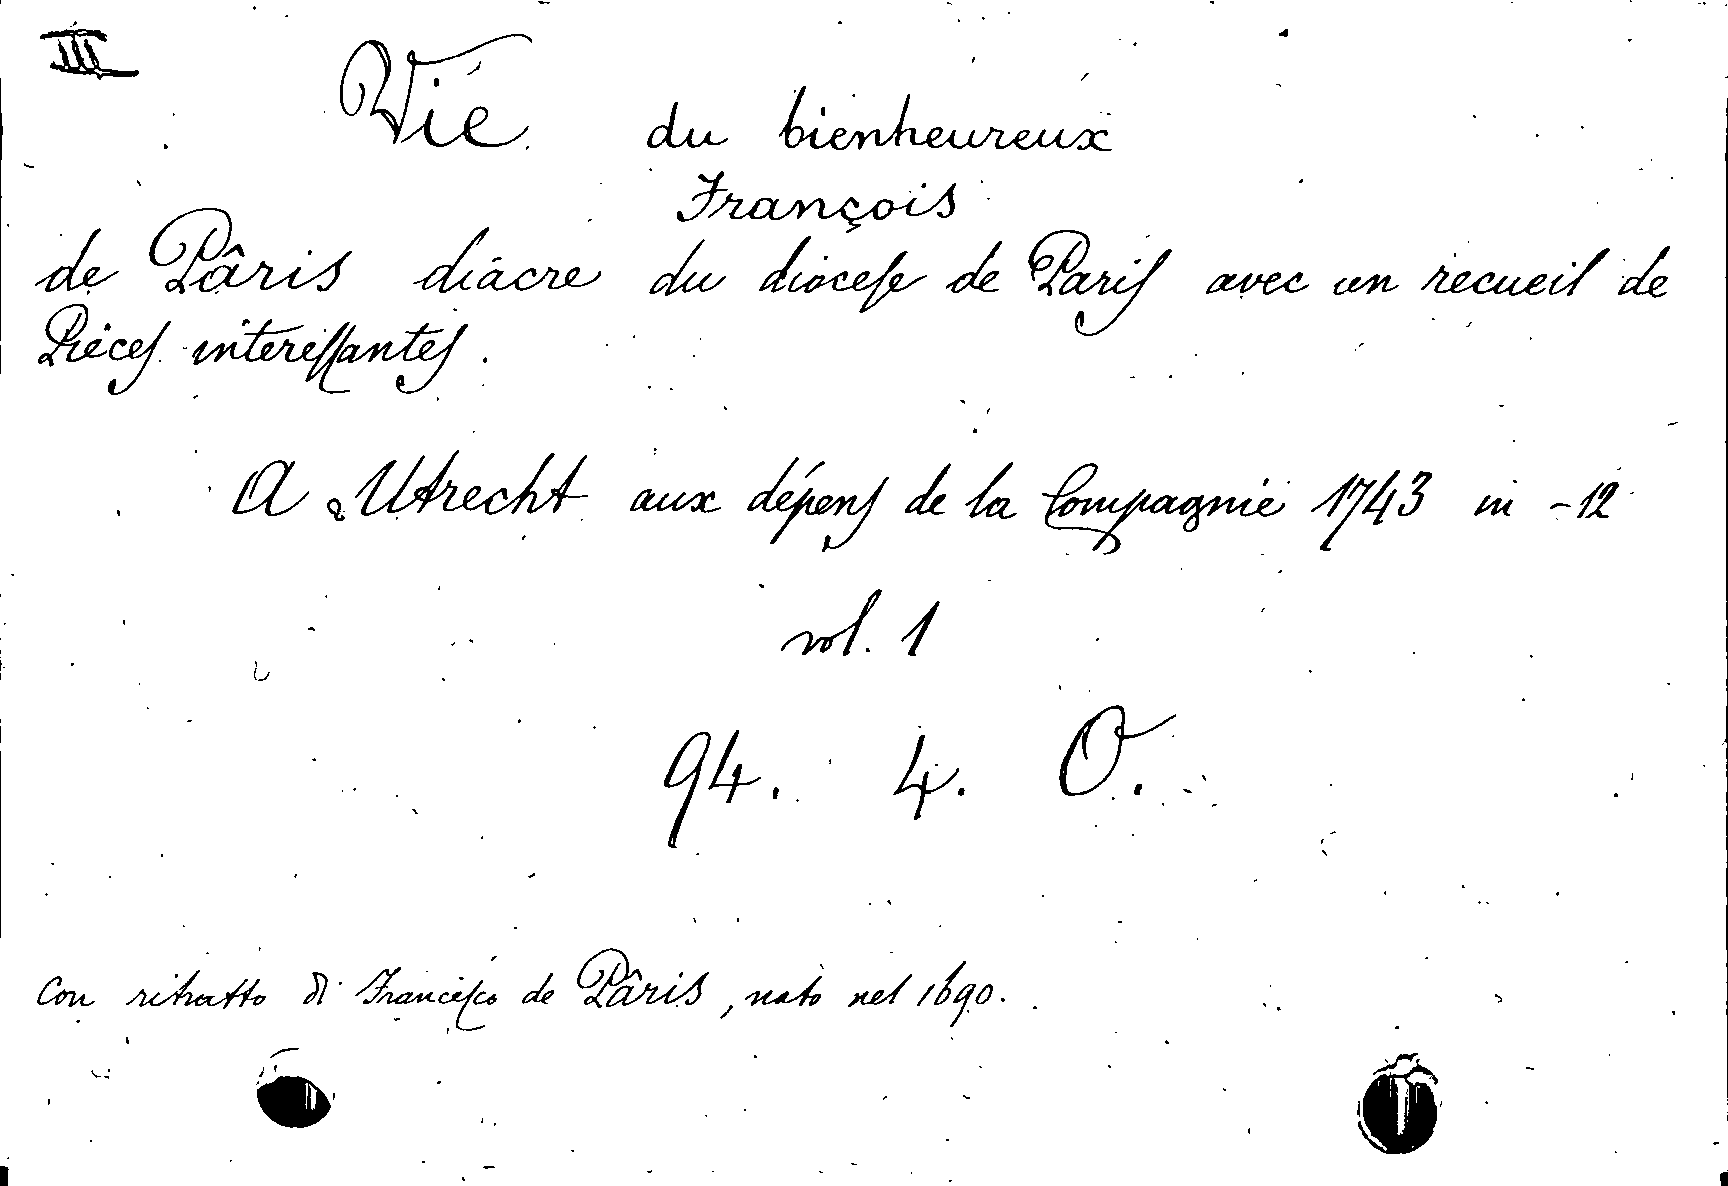 III
Vie du bienheureux
François
de Pâris diacre du diocese de Paris avec un recueil de
Pièces interessantes.
A Utrecht aux dépens de la Compagnie 1743 in -12
vol. 1
94. 4. O.
Con ritratto di Francesco de Pâris, nato nel 1690.